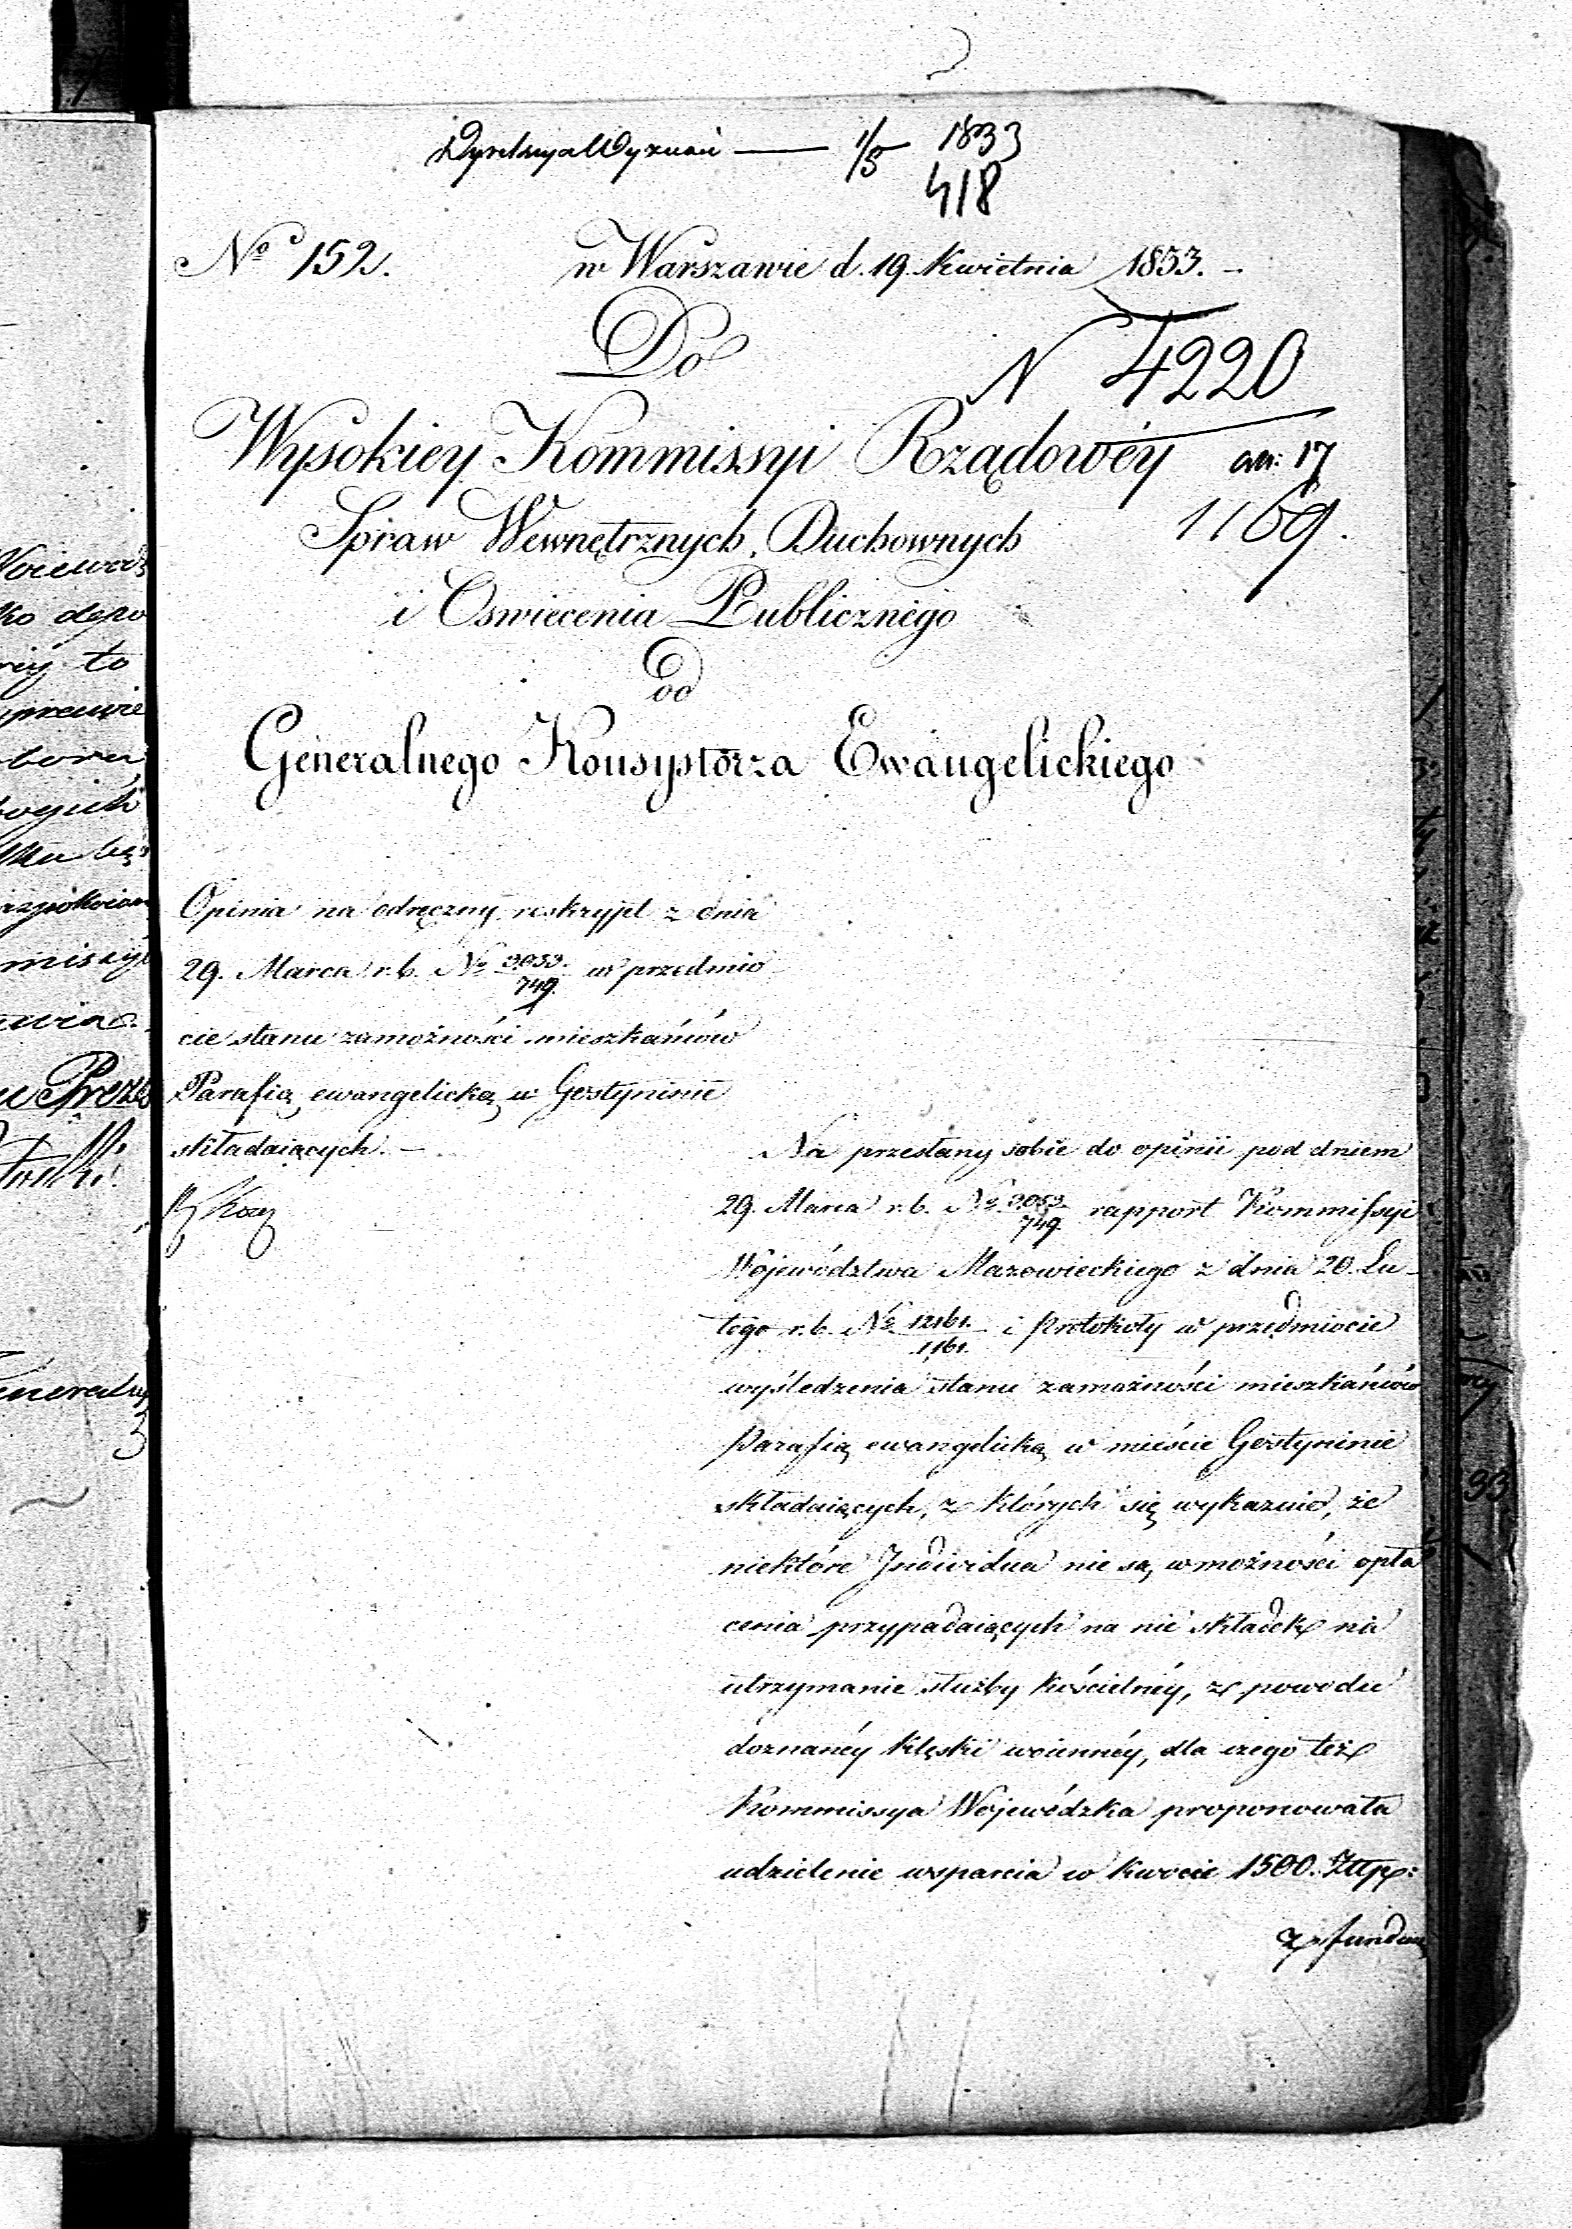 Dyrekcya Wyznań — 1/5 1833
418
No 152. w Warszawie d. 19. Kwietnia 1833. -
Do
N 4220
Wysokiey Kommissyi Rządowéy an: 17
Spraw Wewnętrznych, Duchownych 1169.
i Oswiecenia Publicznégo
od
Generalnego Konsystorza Ewangelickiego
Opinia na odręczny reskrypt z dnia
29. Marca r.b. No 3053./749. w przedmio
cie stanu zamożności mieszkańców
Parafią ewangelicką w Gostyninie
składaiących. -
Na przesłany sobie do opinii pod dniem
29. Marca r.b. No 3053/749. rapport Kommissyi
Województwa Mazowieckiego z dnia 20. Lu-
tego r.b. No 12161./1,161. i Protokóły w przedmiocie
wyśledzenia stanu zamożności mieszkańców
Parafią ewangelicką w mieście Gostyninie
składaiących, z których się wykazuie, że
niektóre Individua nie są w możności opła
cenia przypadaiących na nie składek na
utrzymanie służby kościelnéy, z powodu
doznanéy klęski woiennéy, dla czego też
Kommissya Wojewódzka proponowała
udzielenie wsparcia w kwocie 1500. Złłp:
z fundu